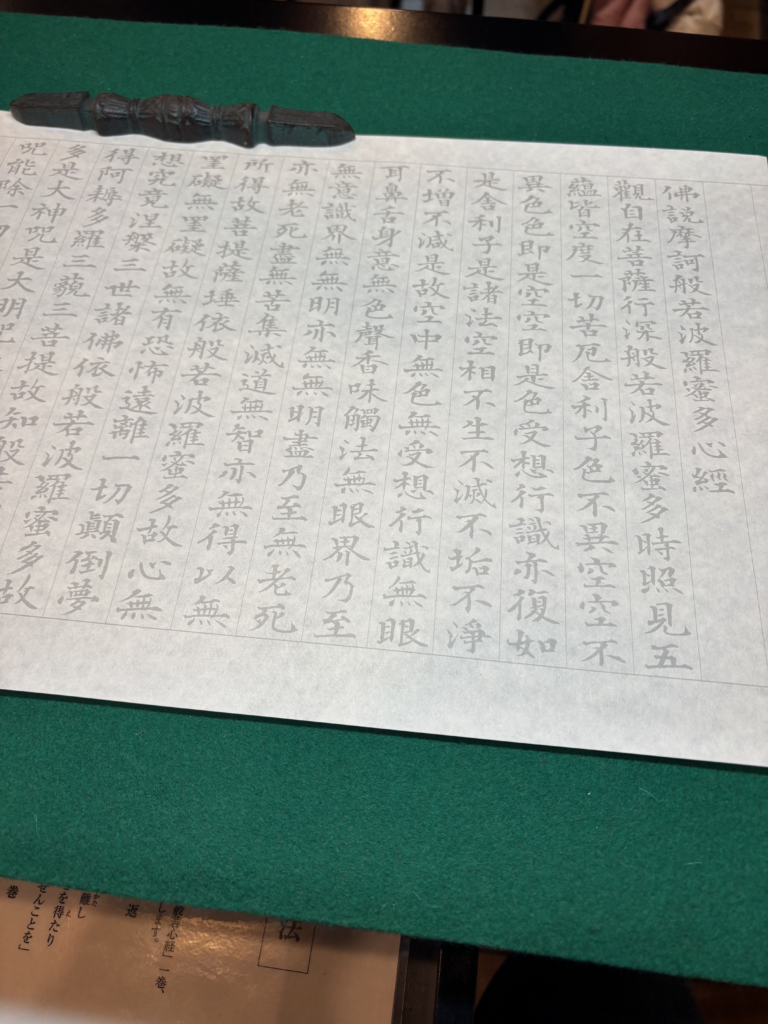 佛説摩訶般若波羅蜜多心經
觀自在菩薩行深般若波羅蜜多時照見五
蘊皆空度一切苦厄舎利子色不異空空不
異色色即是空空即是色受想行識亦復如
是舎利子是諸法空相不生不滅不垢不淨
不增不減是故空中無色無受想行識無眼
耳鼻舌身意無色聲香味觸法無眼界乃至
無意識界無無明亦無無明盡乃至無老死
亦無老死盡無苦集滅道無智亦無得以無
所得故菩提薩埵依般若波羅蜜多故心無
罣礙無罣礙故無有恐怖遠離一切顛倒夢
想究竟涅槃三世諸佛依般若波羅蜜多故
得阿耨多羅三藐三菩提故知般
多是大神呪是大明呪
呪能除一切
法
般若心経」一巻、
します。
返
難し
を得たり
せんことを」
巻